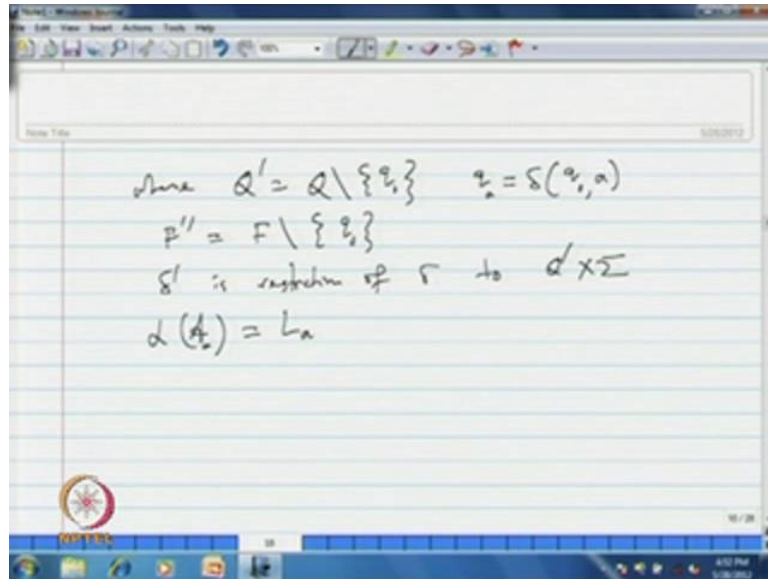 Note1 - Windows Journal
File Edit View Insert Actions Tools Help
Note Title
5/28/2012
where Q' = Q \ {q₀} qₐ = δ(q₀, a)
F'' = F \ {q₀}
δ' is restriction of δ to Q' × Σ
L(Aₐ) = Lₐ
NPTEL
18
4:52 PM
5/28/2012